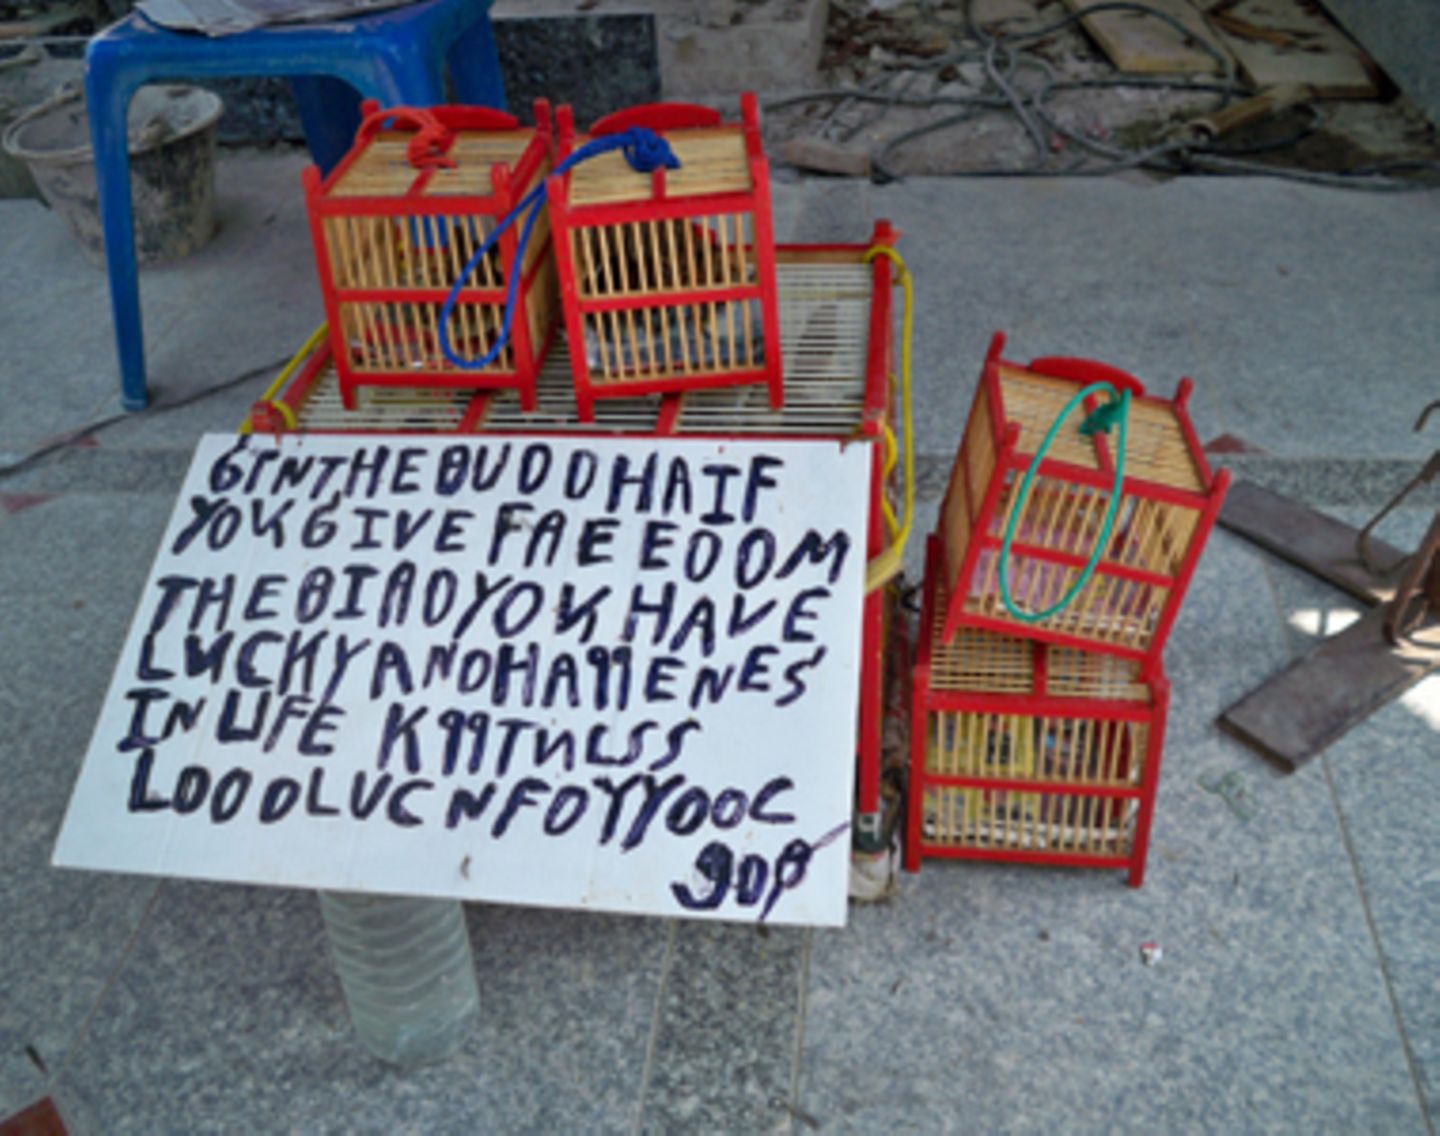 GINTHEBUDDHAIF
YOUGIVE FAEEDOM
THEBIADYOUHAVE
LUCKYANDHAPPENES
IN LIFE KPPTNLSS
LOODLUCNFOYYOOC